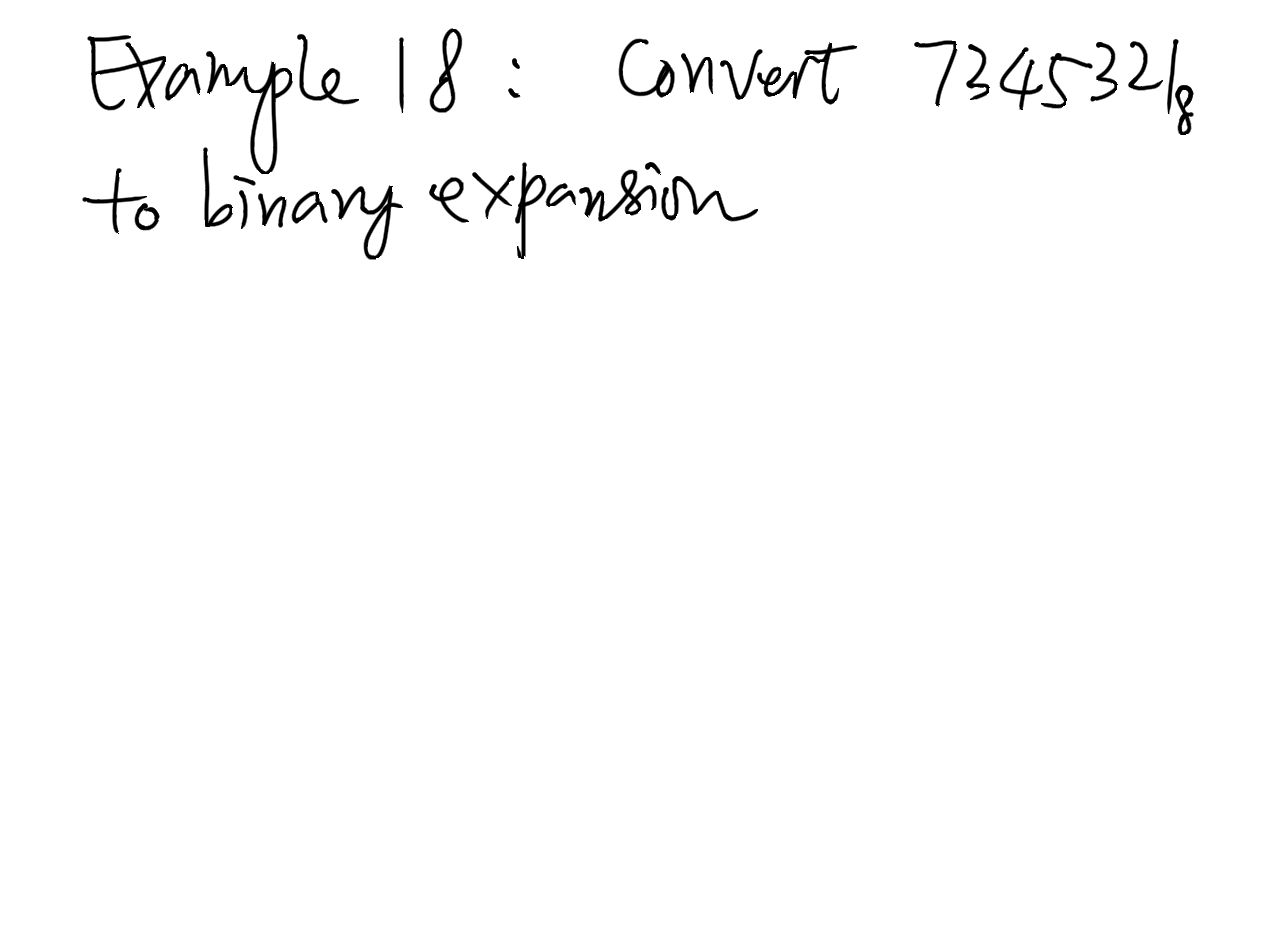 Example 18 : Convert 7345321₈
to binary expansion